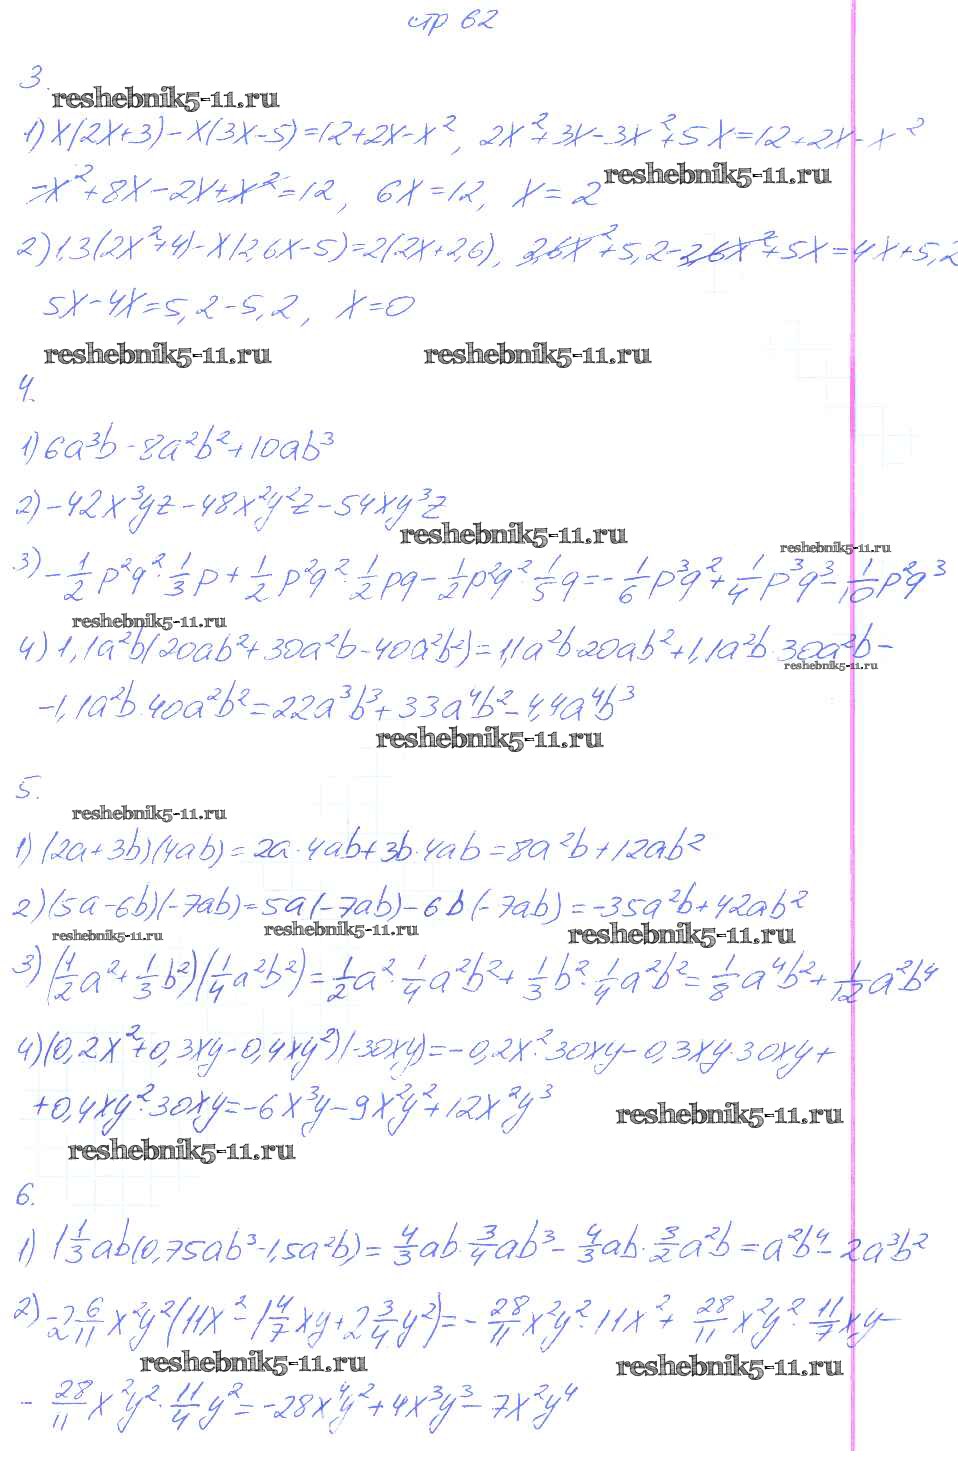 стр 62
3.
reshebnik5-11.ru
1) x(2x+3)-x(3x-5)=12+2x-x², 2x²+3x-3x²+5x=12+2x-x²
reshebnik5-11.ru
-x²+8x-2x+x²=12, 6x=12, x=2
2) 1,3(2x²+4)-x(2,6x-5)=2(2x+2,6), 2,6x²+5,2-2,6x²+5x=4x+5,2
5x-4x=5,2-5,2, x=0
reshebnik5-11.ru reshebnik5-11.ru
4.
1) 6a³b-8a²b²+10ab³
2) -42x³yz-48x²y²z-54xy³z
reshebnik5-11.ru
reshebnik5-11.ru
3) -1/2 p²q²·1/3 p+1/2 p²q²·1/2 pq-1/2 p²q²·1/5 q=-1/6 p³q²+1/4 p³q³-1/10 p²q³
reshebnik5-11.ru
4) 1,1a²b(20ab²+30a²b-40a²b²)=1,1a²b·20ab²+1,1a²b·30a²b-
reshebnik5-11.ru
-1,1a²b·40a²b²=22a³b³+33a⁴b²-4,4a⁴b³
reshebnik5-11.ru
5.
reshebnik5-11.ru
1) (2a+3b)(4ab)=2a·4ab+3b·4ab=8a²b+12ab²
2) (5a-6b)(-7ab)=5a(-7ab)-6b(-7ab)=-35a²b+42ab²
reshebnik5-11.ru reshebnik5-11.ru reshebnik5-11.ru
3) (1/2 a²+1/3 b²)(1/4 a²b²)=1/2 a²·1/4 a²b²+1/3 b²·1/4 a²b²=1/8 a⁴b²+1/12 a²b⁴
4) (0,2x²+0,3xy-0,4xy²)(-30xy)=-0,2x²·30xy-0,3xy·30xy+
+0,4xy²·30xy=-6x³y-9x²y²+12x²y³
reshebnik5-11.ru
reshebnik5-11.ru
6.
1) 1 1/3 ab(0,75ab³-1,5a²b)=4/3 ab·3/4 ab³-4/3 ab·3/2 a²b=a²b⁴-2a³b²
2) -2 6/11 x²y²(11x²-1 4/7 xy+2 3/4 y²)=-28/11 x²y²·11x²+28/11 x²y²·11/7 xy-
reshebnik5-11.ru reshebnik5-11.ru
-28/11 x²y²·11/4 y²=-28x⁴y²+4x³y³-7x²y⁴